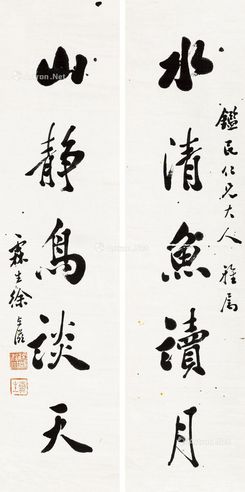 水清魚讀月
鑑民仁兄大人 雅屬
山靜鳥談天
霖生徐